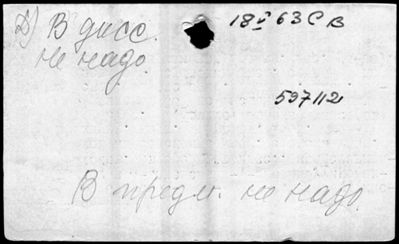 В дисс.
не надо.
18 V 63 С В
597112
В предм. не надо.